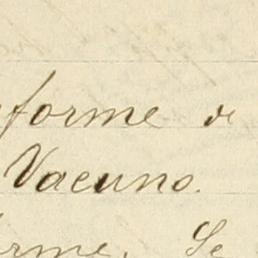 forme de
Vacuno.
rme. Se